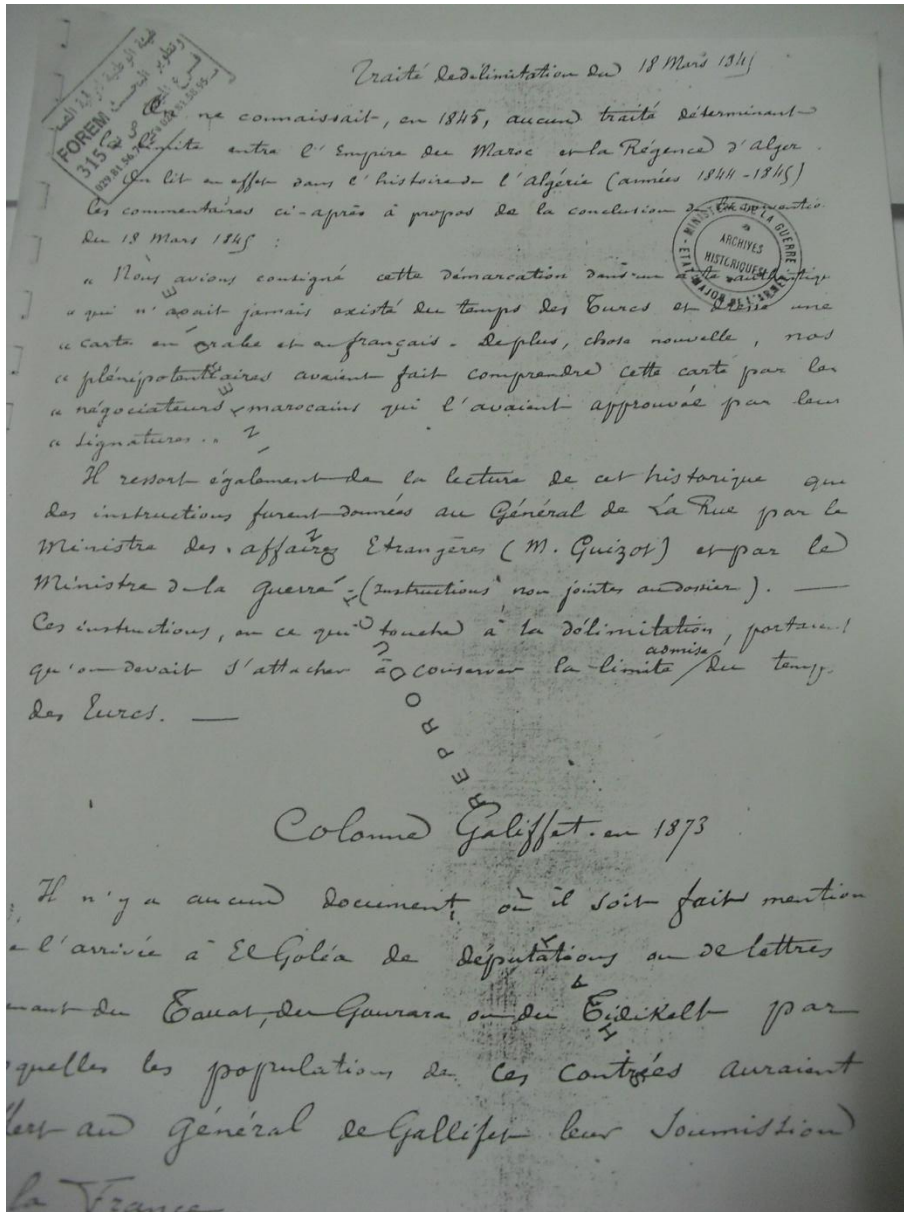 Traité de délimitation du 18 Mars 1845
On ne connaissait, en 1845, aucun traité déterminant
la limite entre l'Empire du Maroc et la Régence d'Alger.
On lit en effet dans l'histoire de l'Algérie (années 1844-1845)
les commentaires ci-après à propos de la conclusion de la convention
du 18 Mars 1845 :
" Nous avions consigné cette démarcation dans un acte authentique
" qui n'avait jamais existé du temps des Turcs et dressé une
" carte en arabe et en français - De plus, chose nouvelle, nos
" plénipotentiaires avaient fait comprendre cette carte par les
" négociateurs marocains qui l'avaient approuvée par leurs
" signatures..
Il ressort également de la lecture de cet historique que
des instructions furent données au Général de La Rue par le
Ministre des affaires Etrangères (M. Guizot) et par le
Ministre de la guerre - (instructions non jointes au dossier). —
Ces instructions, en ce qui touche à la délimitation, portaient
qu'on devait s'attacher à conserver la limite admise du temps
des Turcs. —
Colonne Galiffet en 1873
Il n'y a aucun document, où il soit fait mention
l'arrivée à El Goléa de députations ou de lettres
du Touat, du Gourara ou du Tidikelt par
les populations de ces contrées auraient
au Général de Gallifet leur soumission
la France
FOREM
315
MINISTÈRE DE LA GUERRE
ARCHIVES
HISTORIQUES
ETAT-MAJOR DE L'ARMÉE
REPRODUCTION INTERDITE